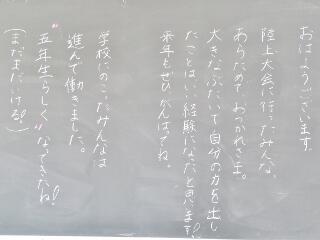 おはようございます。
陸上大会に行ったみんな、
あらためておつかれさま。
大きなぶたいで自分の力を出し
たことはいい経験になったと思います!
来年もぜひがんばってね。
学校にのこったみんなは
進んで働きました。
"五年生らしく"なってきたね!
(まだまだいける!)